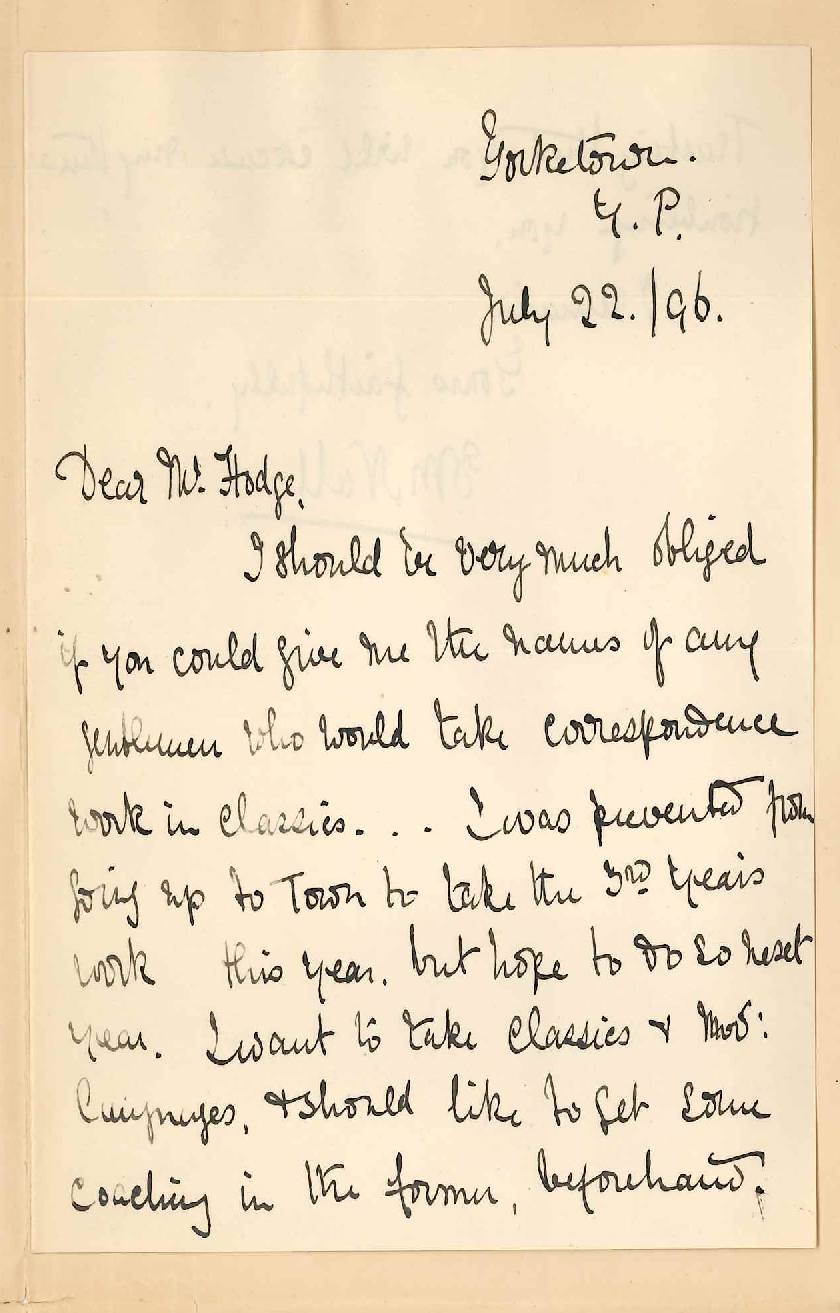 Yorketown.
Y. P.
July 22. /96.
Dear Mr. Hodge,
I should be very much obliged
if you could give me the names of any
gentlemen who would take correspondence
work in classics. . . I was prevented from
going up to Town to take the 3rd years
work this year, but hope to do so next
year. I want to take classics & Mod:
Languages, & should like to get some
coaching in the former, beforehand.